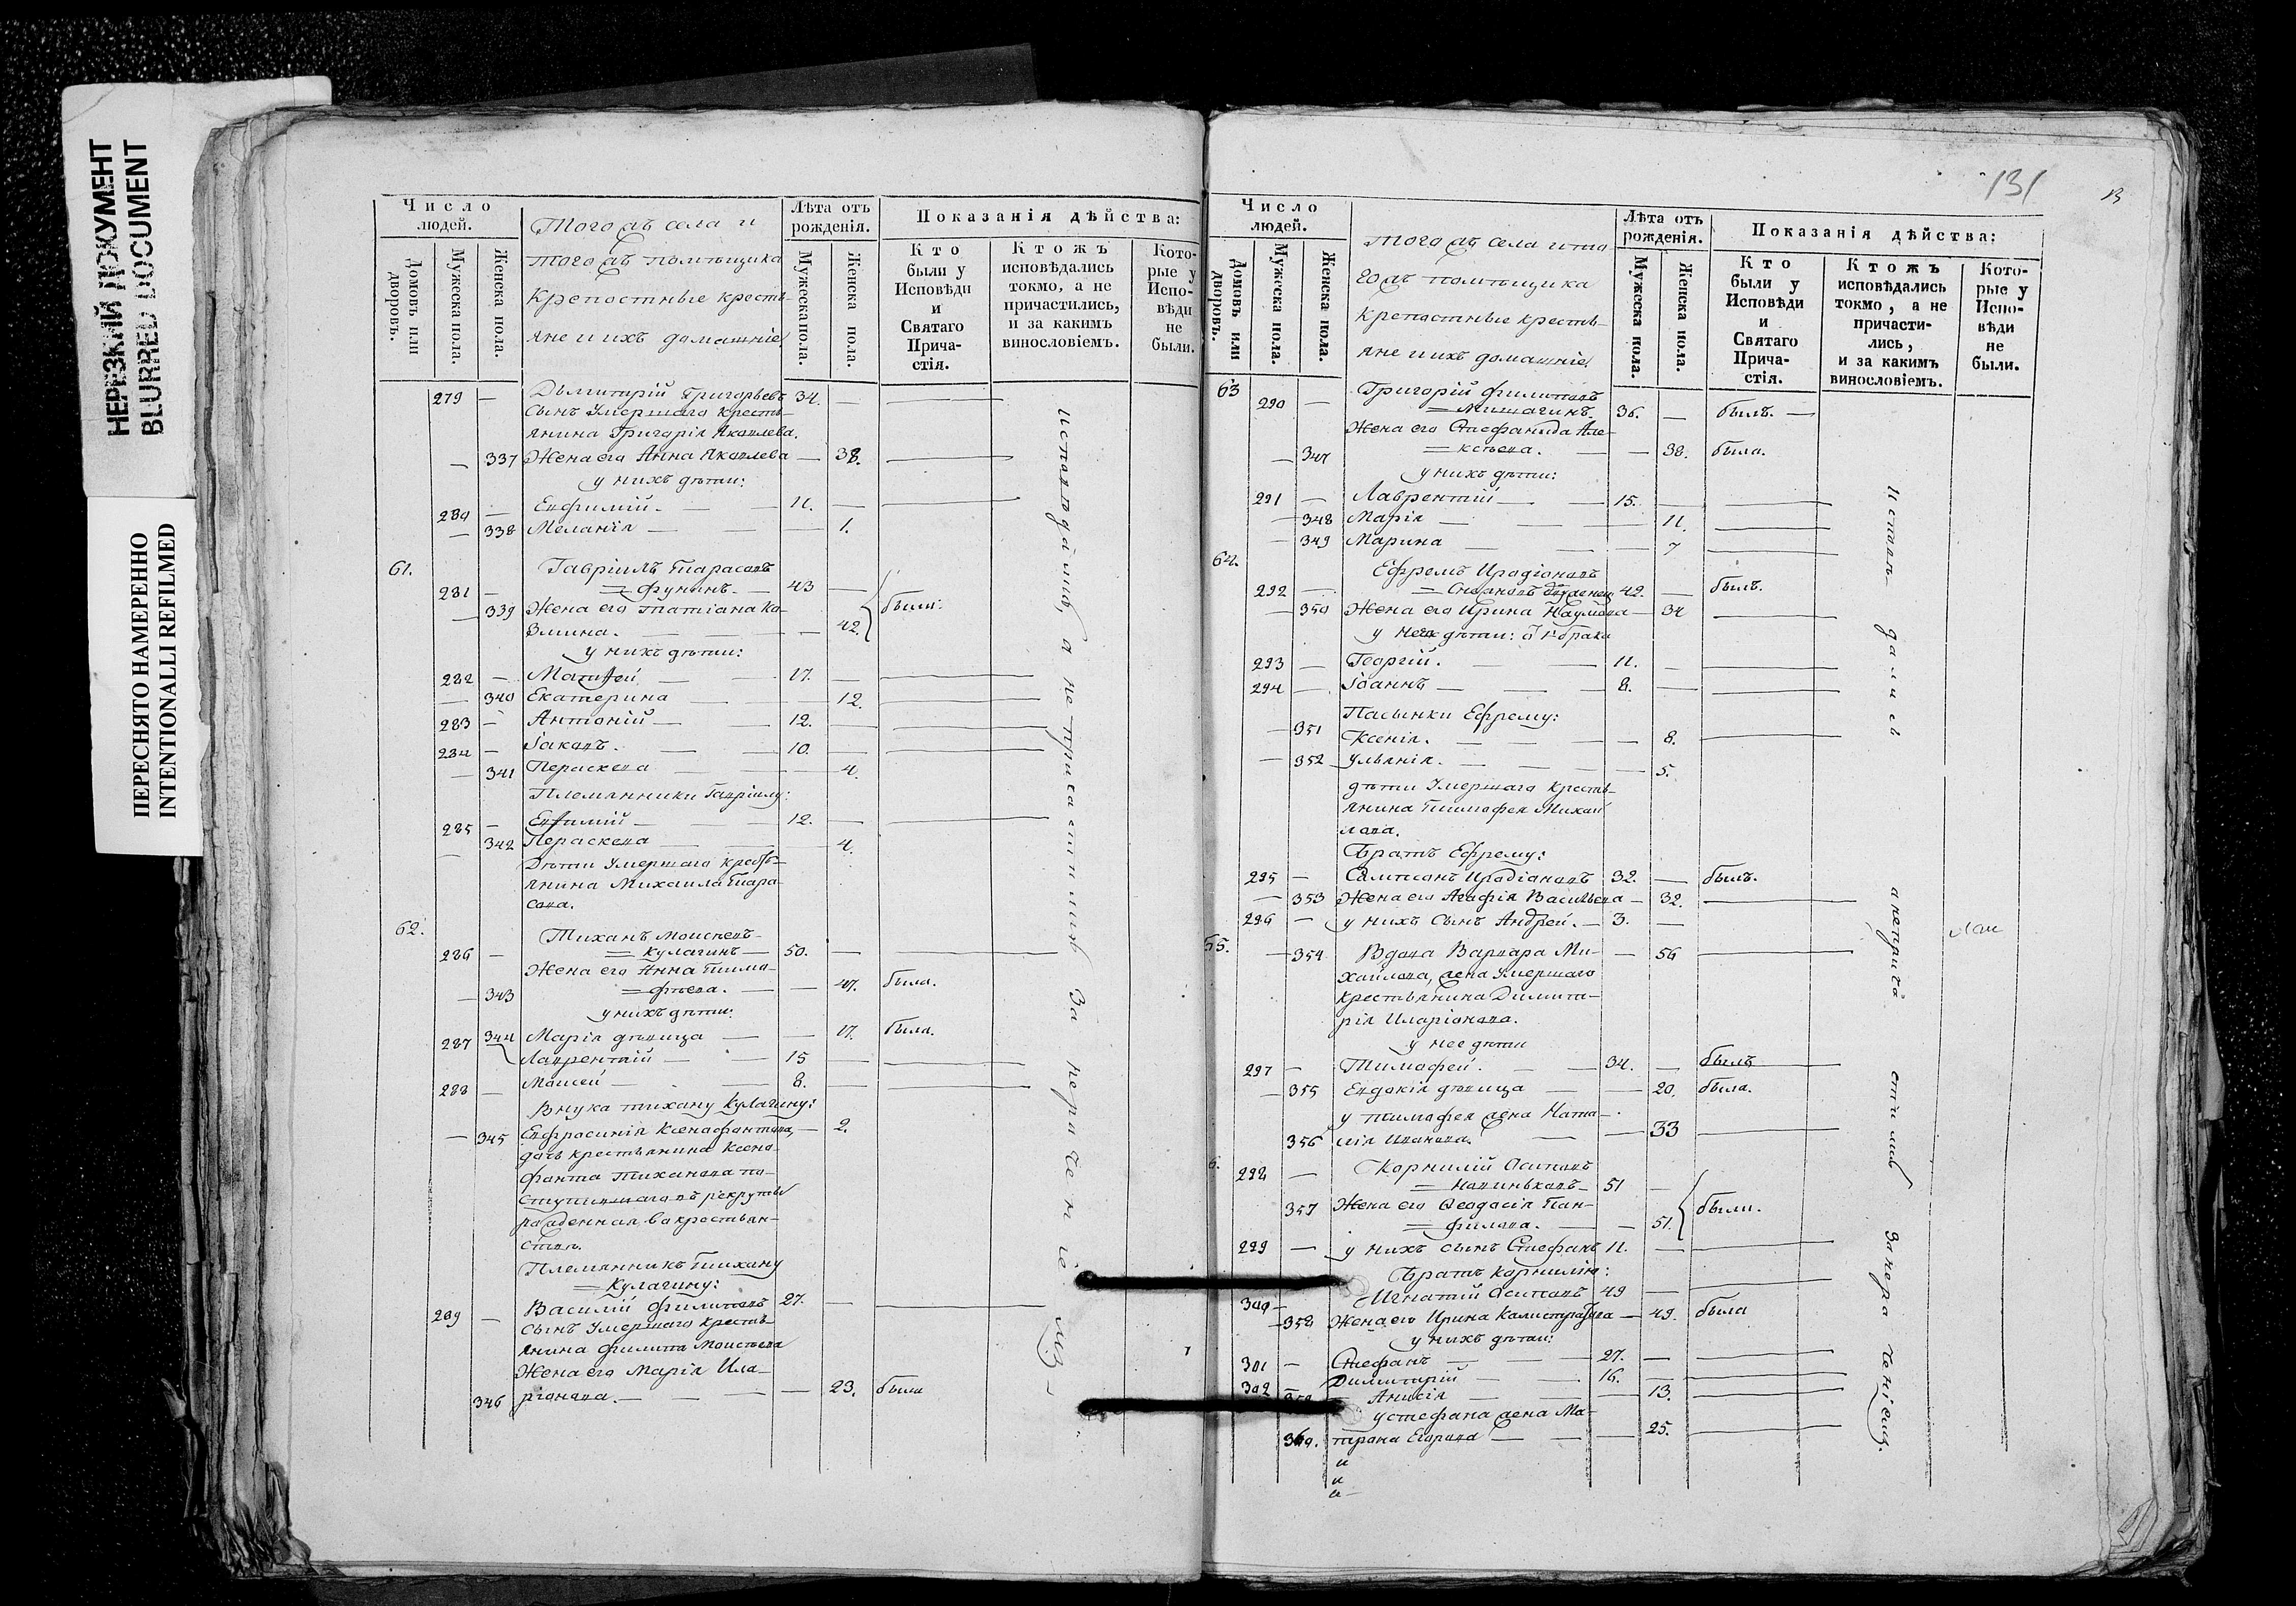 НЕРЕЗКИЙ ДОКУМЕНТ
BLURRED DOCUMENT
ПЕРЕСНЯТО НАМЕРЕННО
INTENTIONALLI REFILMED
Число людей.
Домовъ или дворовъ.
Мужеска пола.
Женска пола.
Тогожъ села и
тогожъ помѣщика
Крепостные кресть-
яне и ихъ домашніе
Лѣта отъ рожденія.
Мужеска пола.
Женска пола.
Показанія дѣйства:
Кто были у Исповѣди и Святаго Прича-стія.
Ктожъ исповѣдались токмо, а не причастились, и за какимъ винословіемъ.
Кото-рые у Испо-вѣди не были.
279 — Дъмитрій Григорьевъ 34. —
Сынъ Умершаго кресть-
янина Григорія Яковлева.
— 337 Жена его Анна Яковлева — 38.
у нихъ дѣти:
280 — Евфимій — 11. —
— 338 Меланія — 1.
61. Гавріилъ Тарасовъ
281 — = Фунинъ — 43 —
— 339 Жена его Татіана Ко-
змина. — 42. были.
у нихъ дѣти:
282 — Матфей — 17. —
— 340 Екатерина — 12.
283 — Антоній — 12. —
284 — Іаковъ. — 10. —
— 341 Параскева — 4.
Племянники Гавріилу:
285 — Евфимій — 12. —
— 342 Параскева — 4.
Дѣти Умершаго кресть-
янина Михаила Тара-
сова.
62. Тиханъ Моисеевъ
286 — = Кулагинъ — 50. —
Жена его Анна Тимо-
— 343 = фѣева. — 47. была.
у нихъ дѣти:
344 Марія дѣвица — 17. была.
287 Лаврентій — 15 —
288 — Моисей — 8. —
Внука тихану Кулагину:
— 345 Евфросинія Ксенофонтова, — 2.
дочь крестьянина Ксено-
фонта Тиханова по-
ступившаго въ рекруты
рожденная в крестьян-
ствѣ.
Племянникъ Тихану
= Кулагину:
289 — Василій Филиповъ 27. —
Сынъ Умершаго кресть-
янина Филипа Моисеева
Жена его Марія Ила-
346 ріонова. — 23. была
исповѣдались, а не причастились за нераченіемъ
131
Число людей.
Домовъ или дворовъ.
Мужеска пола.
Женска пола.
Тогожъ села и то
гожъ помѣщика
Крепостные кресть-
яне и ихъ домашніе
Лѣта отъ рожденія.
Мужеска пола.
Женска пола.
Показанія дѣйства:
Кто были у Исповѣди и Святаго Прича-стія.
Ктожъ исповѣдались токмо, а не причасти-лись, и за какимъ винословіемъ.
Кото-рые у Испо-вѣди не были.
63 Григорій Филиповъ
290 — = Мишагинъ. 36. — былъ. —
Жена его Стефанида Але-
— 347 = ксѣева. — 38. была.
у нихъ дѣти:
291 — Лаврентій — 15. —
— 348 Марія — 11.
— 349 Марина — 7
64. Ефремъ Иродіоновъ
292 — 42. — былъ.
— 350 Жена его Ирина Наумова — 34
293 — Георгій. — 11. —
294 — Іоаннъ — 8. —
Пасынки Ефрему:
— 351 Ксенія. — 8.
— 352 Ульянія. — 5.
дѣти Умершаго кресть-
янина Тимофея Михай
лова.
Братъ Ефрему:
295 — Сампсонъ Иродіоновъ 32. — былъ.
— 353 Жена его Агафія Васильева — 32.
296 — у нихъ сынъ Андрей. — 3. —
— 354 Вдова Варвара Ми- — 56
хайлова, жена Умершаго
крестьянина Димит-
рія Иларіонова.
у нее дѣти
297 — Тимофей. — 34. — былъ
— 355 Евдокія дѣвица — 20. была.
у тимофея жена Ната-
356 лія Иванова. — 33
298 — Корнилій Осиповъ
51 —
357 Жена его Ѳеодосія Пан-
= филова. — 51. были.
299 — у нихъ сынъ Стефанъ 11. —
Братъ Корнилію:
300 — Игнатій Осиповъ 49 —
— 358 Жена его Ирина Калистратова — 49. была
у нихъ дѣти:
301 — Стефанъ — 27. —
302 — Димитрій — 16. —
Анисія — 13.
у стефана жена Ма-
360. трона Егорова — 25.
исповѣдались а непричастились за нераченіемъ.